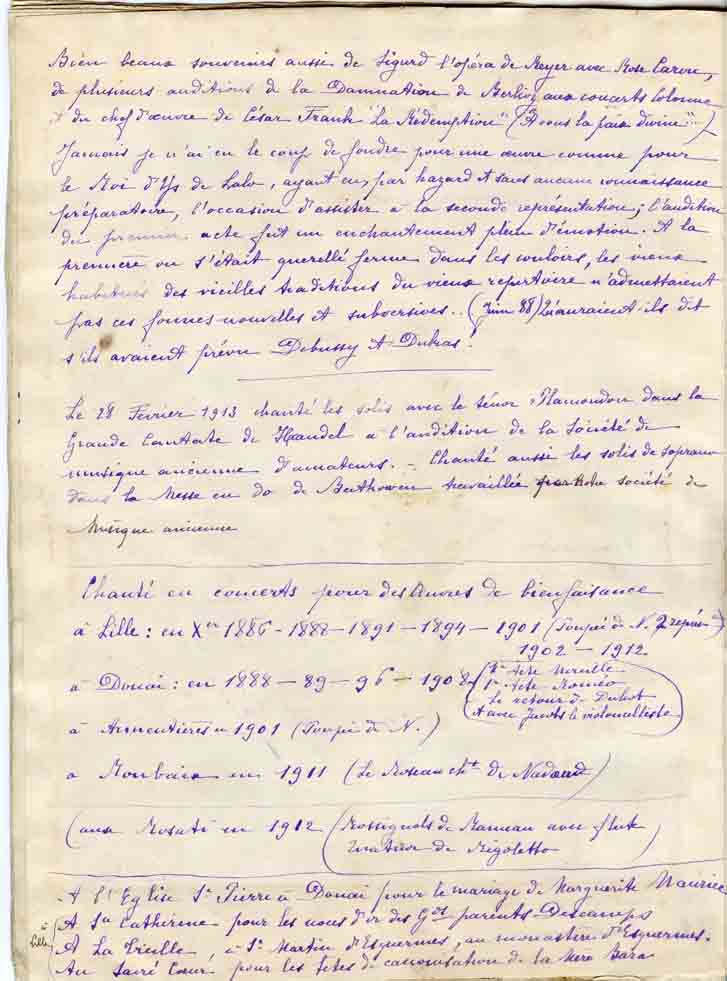 Bien beaux souvenirs aussi de Sigurd l'opéra de Reyer avec Rose Caron,
de plusieurs auditions de la Damnation de Berlioz aux concerts Colonne
& du chef d'œuvre de César Frank "La Rédemption" (A vous la paix divine")
Jamais je n'ai eu le coup de foudre pour une œuvre comme pour
le Roi d'Ys de Lalo, ayant eu, par hazard et sans aucune connaissance
préparatoire, l'occasion d'assister à la seconde représentation; l'audition
du premier acte fut un enchantement plein d'émotion. A la
première on s'était querellé ferme dans les couloirs, les vieux
habitués des vieilles traditions du vieux repertoire n'admettaient
pas ces formes nouvelles et subversives... (Juin 88) Qu'auraient-ils dit
s'ils avaient prévu Debussy et Dukas!
Le 28 Février 1913 chanté les solis avec le ténor Plamondon dans la
Grande Cantate de Haendel à l'audition de la Société de
musique ancienne d'amateurs. - Chanté aussi les solis de soprano
dans la Messe en do de Beethowen travaillée par notre société de
Musique ancienne
Chanté en concerts pour des Œuvres de bienfaisance
à Lille: en Xbre 1886 - 1888 - 1891 - 1894 - 1901 (Poupée de N. 2 représ)
1902 - 1912
à Douai: en 1888 - 89 - 96 - 1908 (1er Acte Mireille
1er Acte Roméo
Le retour de Dukot
& avec Jacobs le violoncelliste)
à Armentières en 1901 (Poupée de N.)
à Roubaix en 1911 (Le Roseau cht de Nadaud)
(aux Rosati en 1912 (Rossignols de Rameau avec flute
Quatuor de Rigoletto)
A l'Eglise St Pierre à Douai pour le mariage de Marguerite Maurice
à Lille (A Ste Catherine pour les noces d'or des Gds parents Descamps
A La Treille, à St Martin d'Esquermes, au monastère d'Esquermes.
Au Sacré Cœur pour les fêtes de canonisation de la Mère Bara